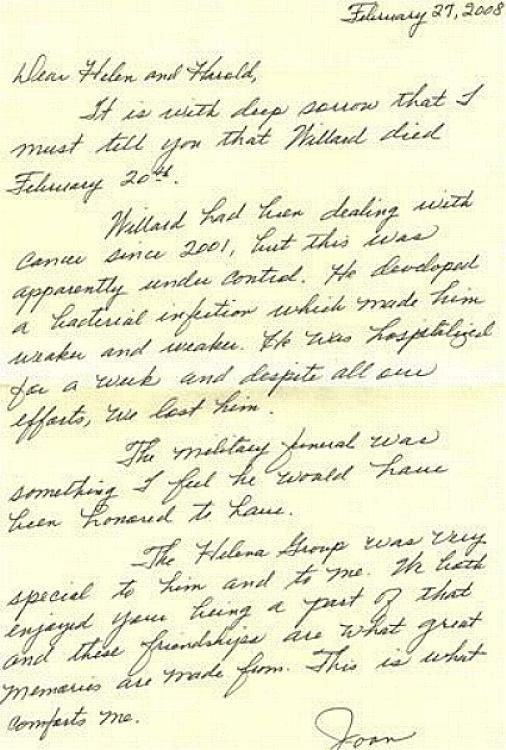 February 27, 2008
Dear Helen and Harold,
It is with deep sorrow that I
must tell you that Willard died
February 20th.
Willard had been dealing with
cancer since 2001, but this was
apparently under control. He developed
a bacterial infection which made him
weaker and weaker. He was hospitalized
for a week and despite all our
efforts, we lost him.
The military funeral was
something I feel he would have
been honored to have.
The Helena Group was very
special to him and to me. We both
enjoyed your being a part of that
and these friendships are what great
memories are made from. This is what
comforts me.
Joan